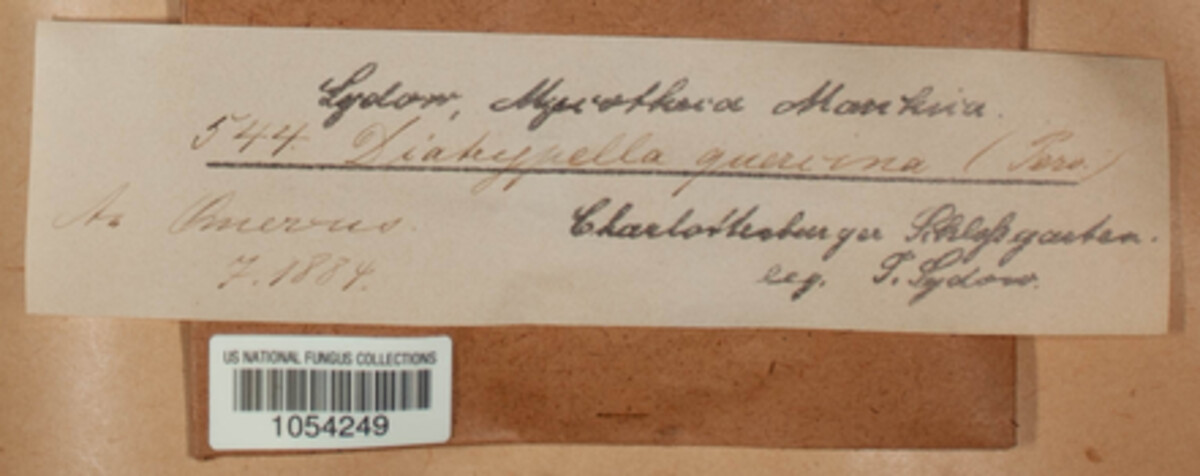 Sydow, Mycotheca Marchica.
544. Diatrypella quercina (Pers.)
An Quercus.
Charlottenburger Schloßgarten.
7.1884.
leg. P. Sydow.
US NATIONAL FUNGUS COLLECTIONS
1054249